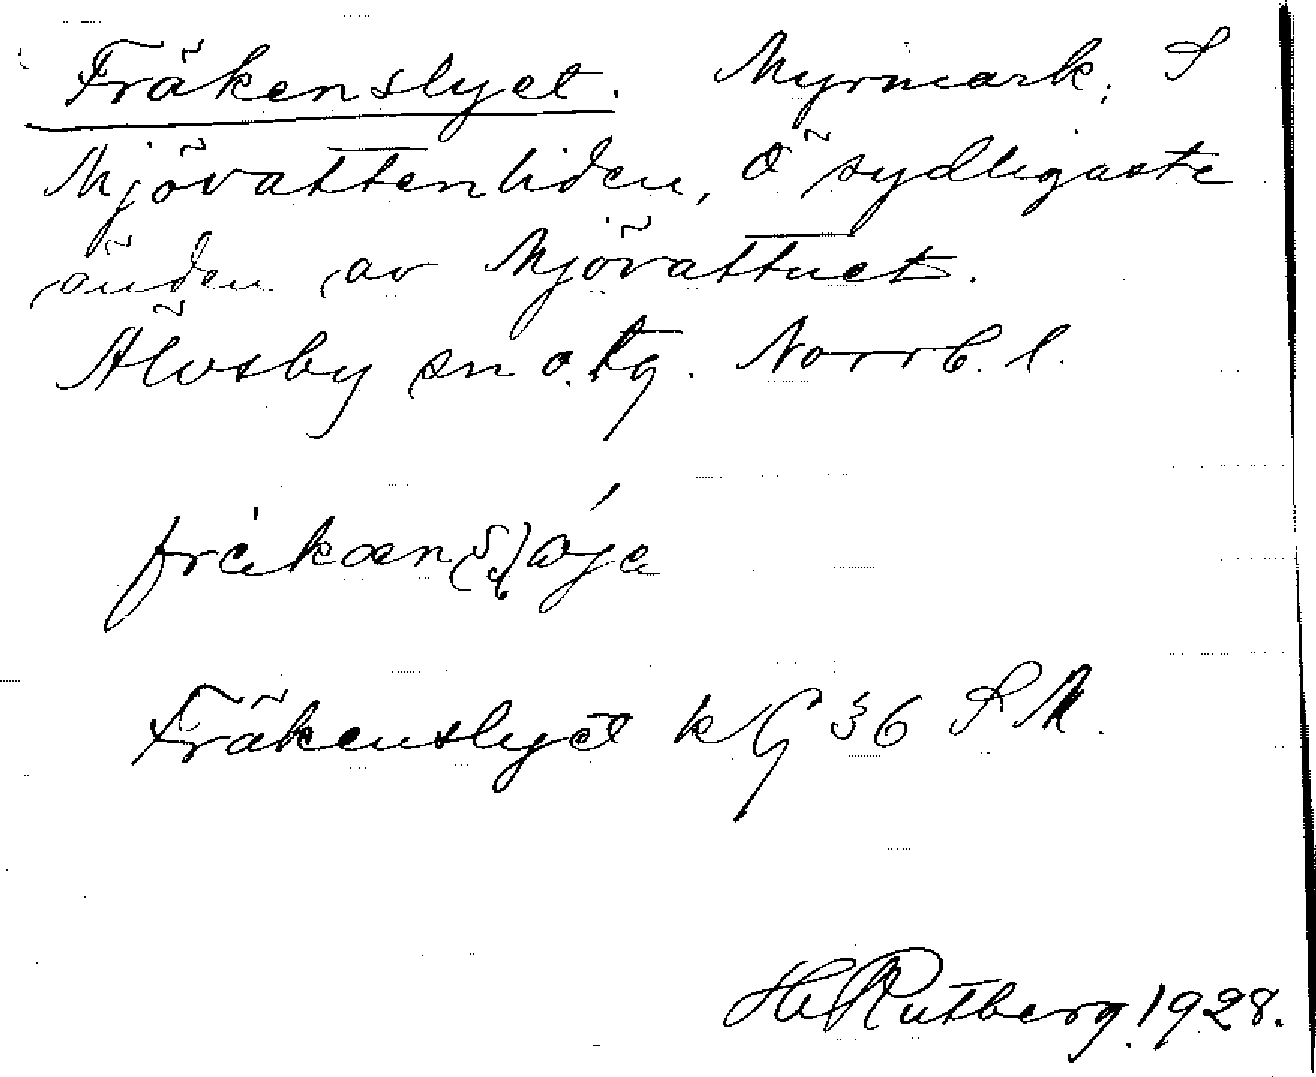 Fräkenslyet. Myrmark, S
Mjövattenliden, Ö sydligaste
änden av Mjövattnet.
Älvsby sn o. tg. Norrb. l.
Fräkenslyet k 36 S M.
H Rutberg 1928.